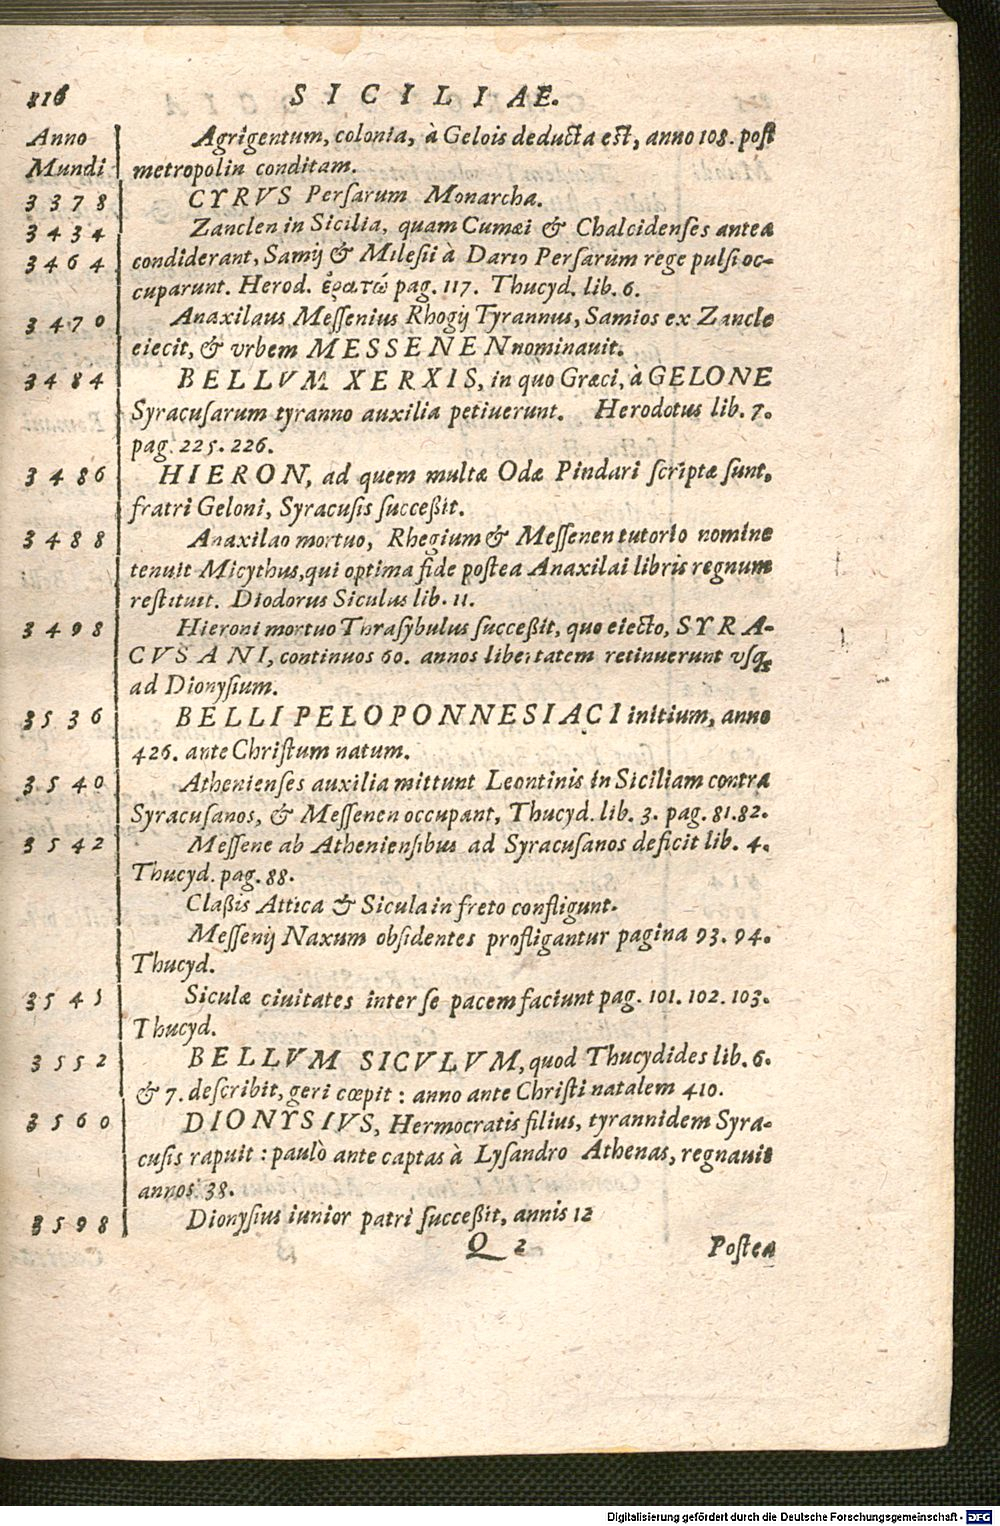 816 SICILIAE.
Anno Agrigentum, colonia, à Gelois deducta est, anno 108. post
Mundi metropolin conditam.
3378 CYRVS Persarum Monarcha.
3434 Zanclen in Sicilia, quam Cumæi & Chalcidenses antea
3464 condiderant, Samij & Milesii à Dario Persarum rege pulsi oc-
cuparunt. Herod. ἐρατώ pag. 117. Thucyd. lib. 6.
3470 Anaxilaus Messenius Rhogij Tyrannus, Samios ex Zancle
eiecit, & vrbem MESSENEN nominauit.
3484 BELLVM XERXIS, in quo Græci, à GELONE
Syracusarum tyranno auxilia petiuerunt. Herodotus lib. 7.
pag. 225. 226.
3486 HIERON, ad quem multæ Odæ Pindari scriptæ sunt,
fratri Geloni, Syracusis succeßit.
3488 Anaxilao mortuo, Rhegium & Messenen tutorio nomine
tenuit Micythus, qui optima fide postea Anaxilai libris regnum
restituit. Diodorus Siculus lib. 11.
3498 Hieroni mortuo Thrasybulus succeßit, quo eiecto, SYRA-
CVSANI, continuos 60. annos libertatem retinuerunt vsq;
ad Dionysium.
3536 BELLI PELOPONNESIACI initium, anno
426. ante Christum natum.
3540 Athenienses auxilia mittunt Leontinis in Siciliam contra
Syracusanos, & Messenen occupant, Thucyd. lib. 3. pag. 81.82.
3542 Messene ab Atheniensibus ad Syracusanos deficit lib. 4.
Thucyd. pag. 88.
Claßis Attica & Sicula in freto confligunt.
Messenij Naxum obsidentes profligantur pagina 93. 94.
Thucyd.
3545 Siculæ ciuitates inter se pacem faciunt pag. 101. 102. 103.
Thucyd.
3552 BELLVM SICVLVM, quod Thucydides lib. 6.
& 7. describit, geri cœpit : anno ante Christi natalem 410.
3560 DIONYSIVS, Hermocratis filius, tyrannidem Syra-
cusis rapuit : paulò ante captas à Lysandro Athenas, regnauit
annos 38.
3598 Dionysius iunior patri succeßit, annis 12
Q 2 Postea
Digitalisierung gefördert durch die Deutsche Forschungsgemeinschaft - DFG